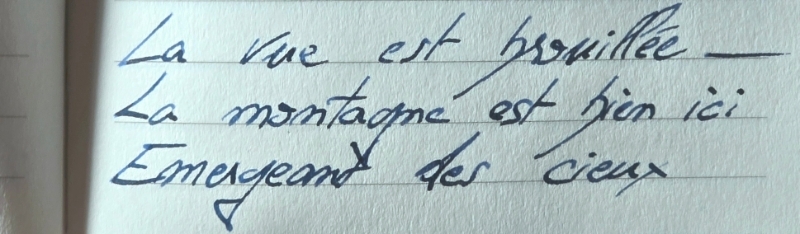 La vue est brouillée —
La montagne est bien ici
Emergeant des cieux